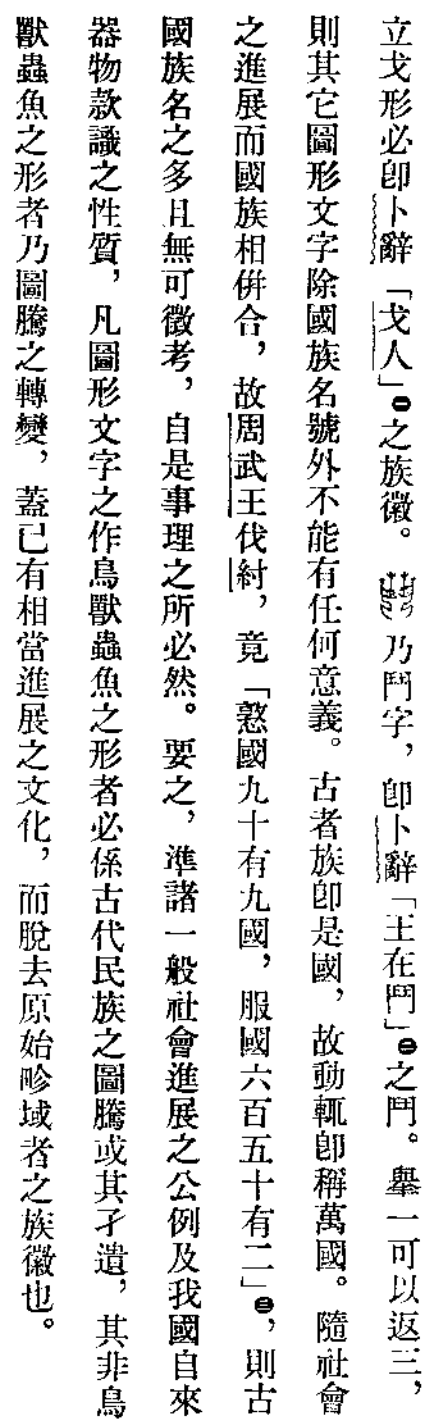 立戈形必卽卜辭「戈人」㊀之族徽。乃鬥字，卽卜辭「王在鬥」㊁之鬥。擧一可以返三，
則其它圖形文字除國族名號外不能有任何意義。古者族卽是國，故動輒卽稱萬國。隨社會
之進展而國族相併合，故周武王伐紂，竟「憝國九十有九國，服國六百五十有二」㊂，則古
國族名之多且無可徵考，自是事理之所必然。要之，準諸一般社會進展之公例及我國自來
器物款識之性質，凡圖形文字之作鳥獸蟲魚之形者必係古代民族之圖騰或其孑遺，其非鳥
獸蟲魚之形者乃圖騰之轉變，蓋已有相當進展之文化，而脫去原始畛域者之族徽也。